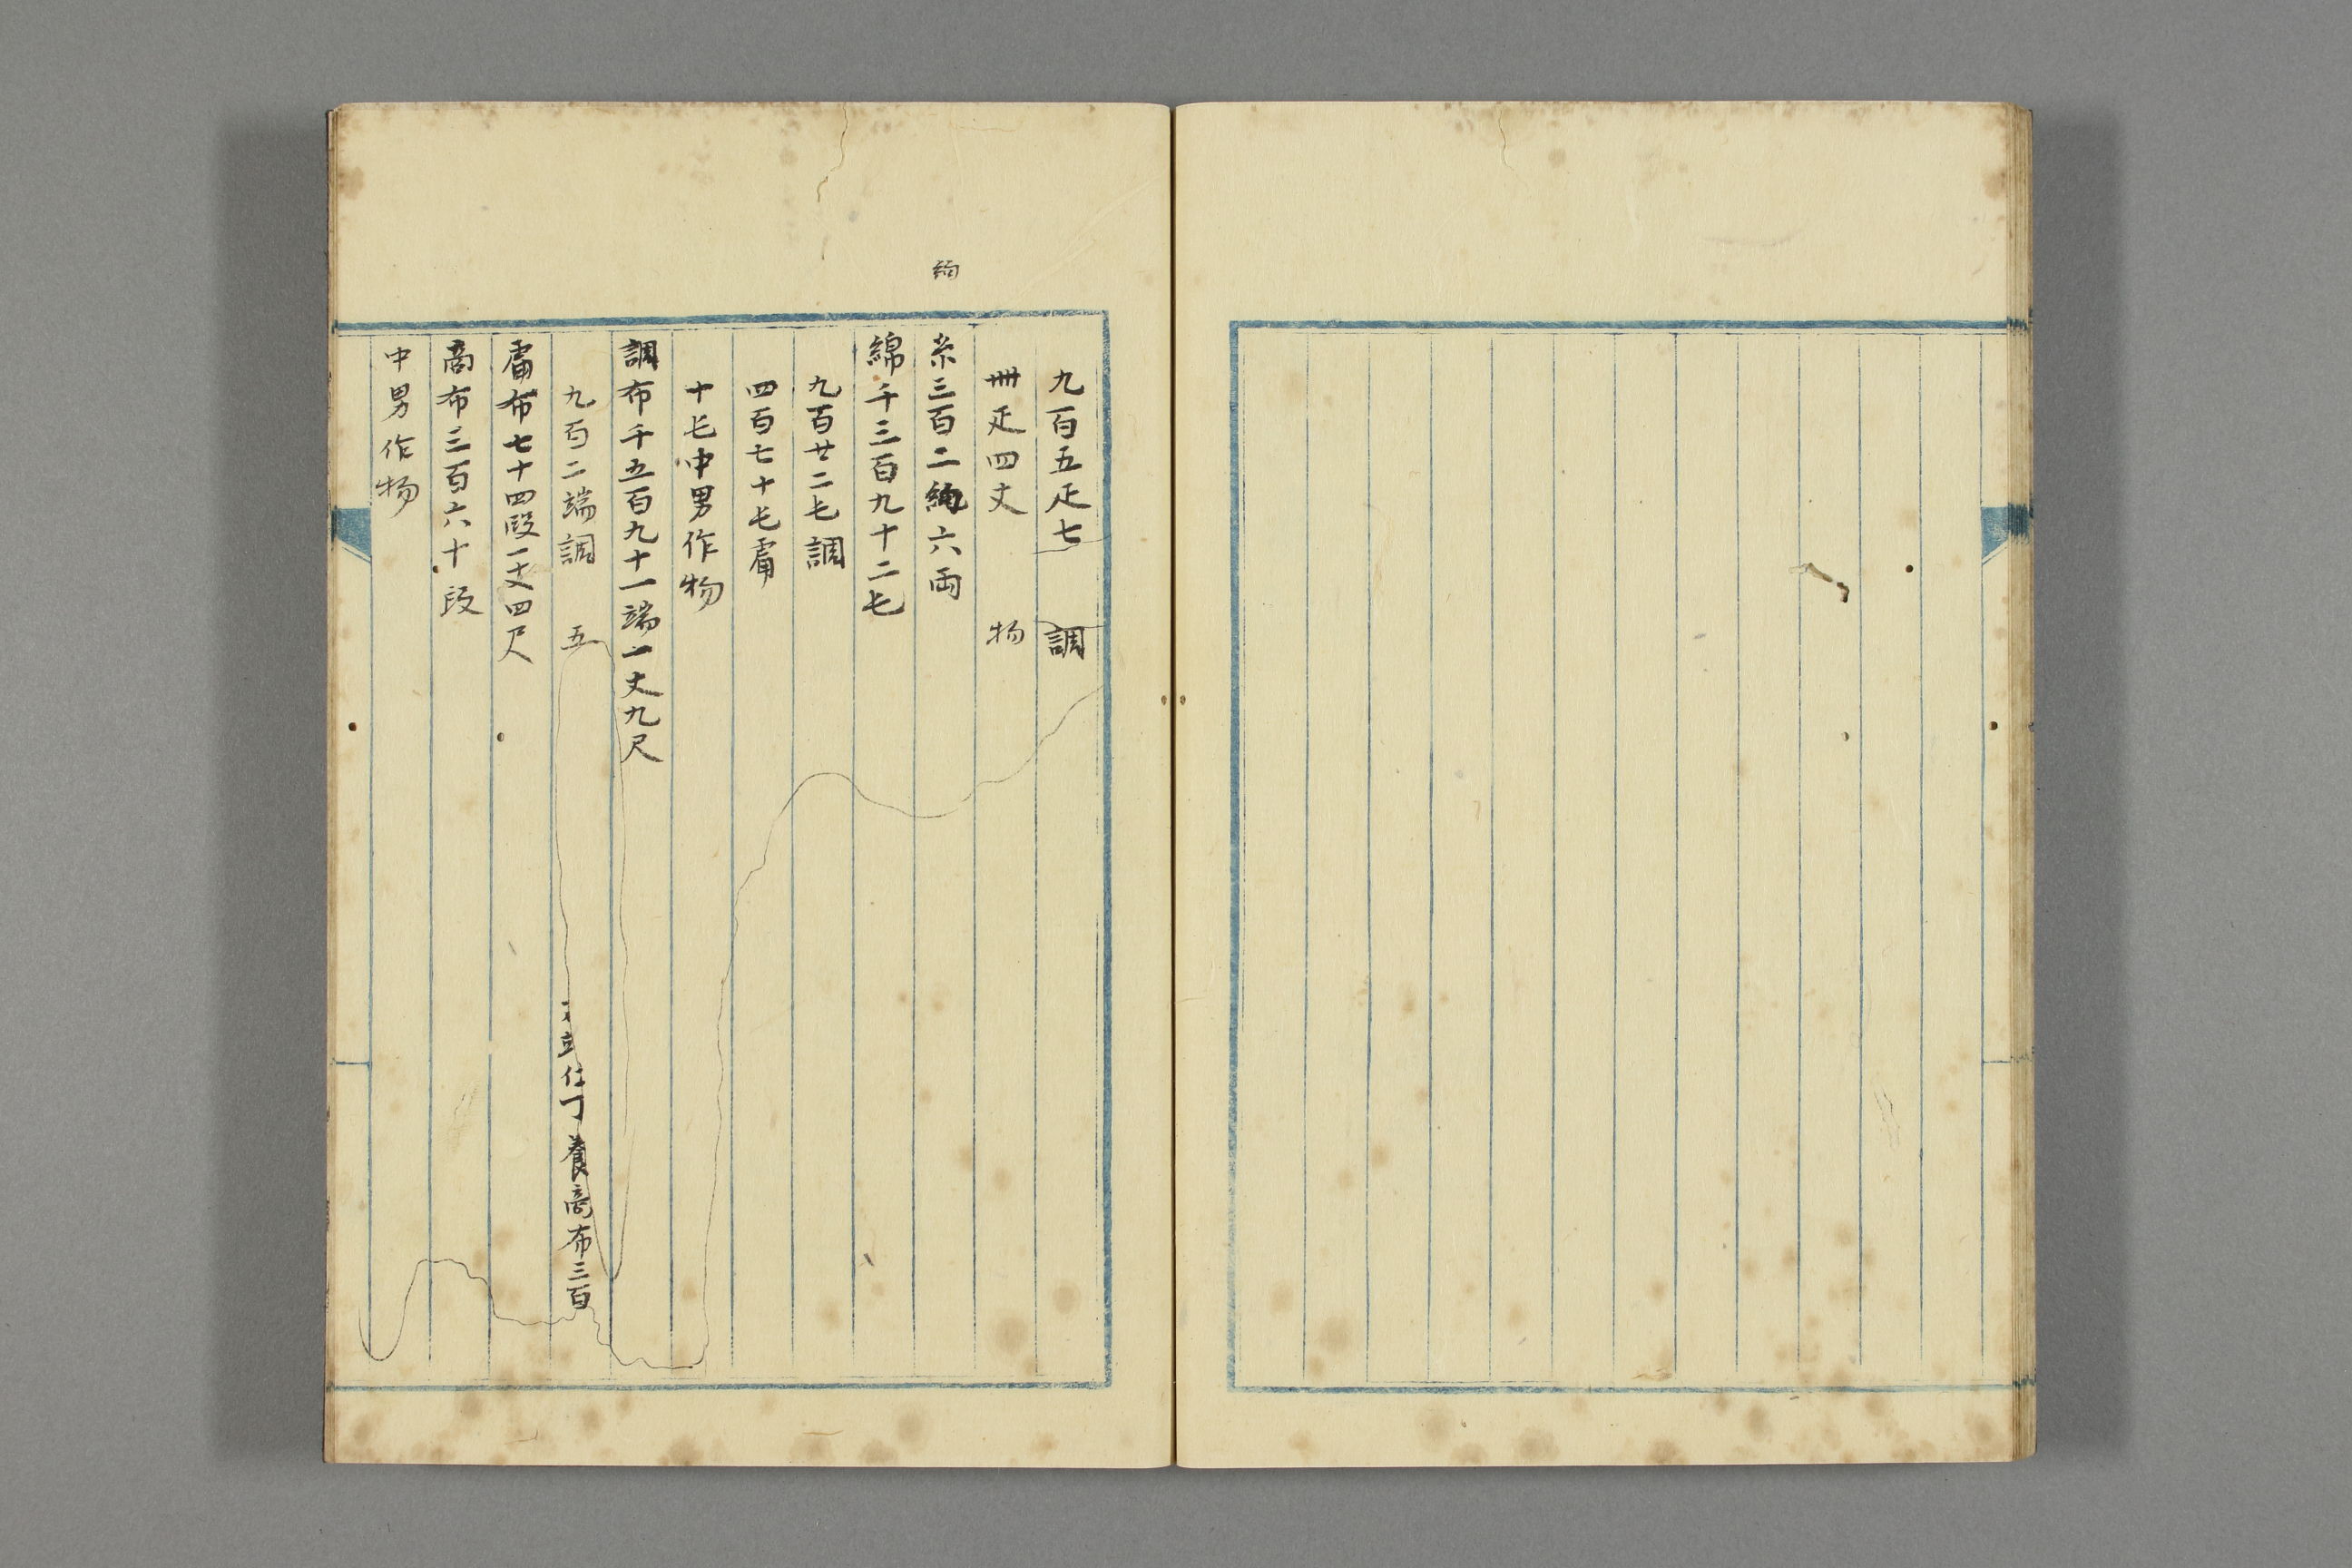 絇
九百五疋七　調
卌疋四丈　物
糸三百二絇六両
綿千三百九十二屯
九百廿二屯調
四百七十屯庸
十屯中男作物
調布千五百九十一端一丈九尺
九百二端調　五
立仕丁養商布三百
庸布七十四段一丈四尺
商布三百六十段
中男作物